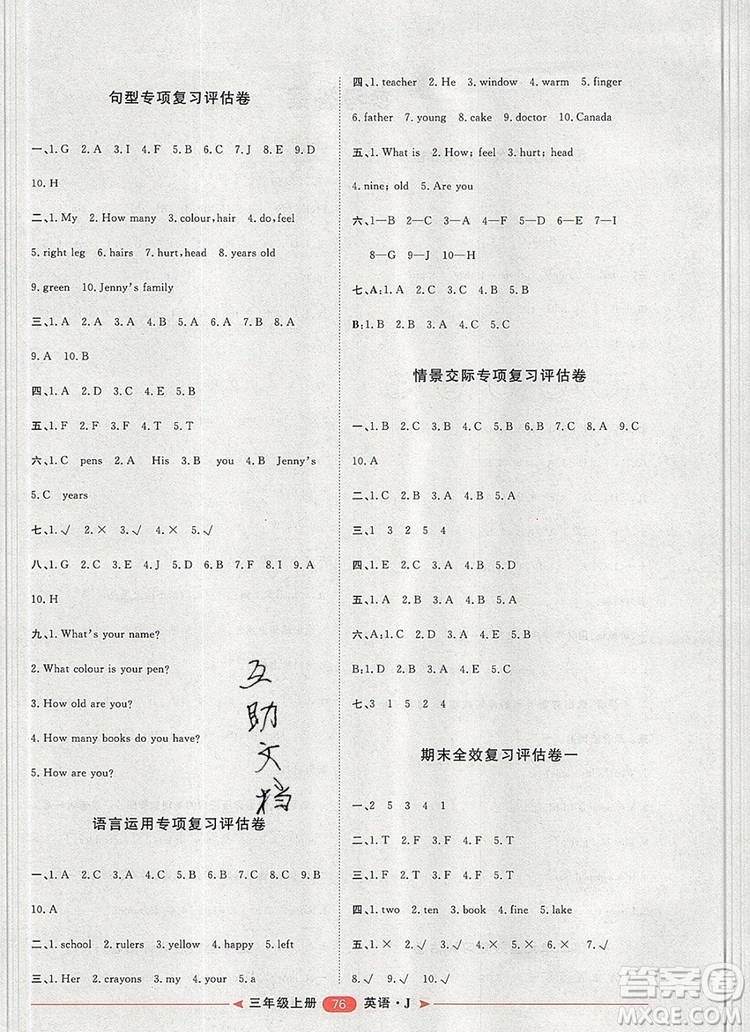 句型专项复习评估卷
一、1.G 2.A 3.I 4.F 5.B 6.C 7.J 8.E 9.D
10.H
二、1.My 2.How many 3.colour,hair 4.do,feel
5.right leg 6.hairs 7.hurt,head 8.years old
9.green 10.Jenny's family
三、1.A 2.A 3.A 4.B 5.A 6.A 7.B 8.A
9.A 10.B
四、1.A 2.B 3.A 4.B 5.A
五、1.F 2.F 3.F 4.T 5.T
六、1.C pens 2.A His 3.B you 4.B Jenny's
5.C years
七、1.√ 2.× 3.√ 4.× 5.√
八、1.G 2.B 3.D 4.C 5.J 6.E 7.F 8.I 9.A
10.H
九、1.What's your name?
2.What colour is your pen?
3.How old are you?
4.How many books do you have?
5.How are you?
语言运用专项复习评估卷
一、1.A 2.C 3.A 4.B 5.A 6.B 7.C 8.C 9.B
10.A
二、1.school 2.rulers 3.yellow 4.happy 5.left
三、1.Her 2.crayons 3.my 4.your 5.an
四、1.teacher 2.He 3.window 4.warm 5.finger
6.father 7.young 8.cake 9.doctor 10.Canada
五、1.What is 2.How; feel 3.hurt; head
4.nine; old 5.Are you
六、1—B 2—C 3—A 4—D 5—E 6—F 7—I
8—G 9—J 10—H
七、A:1.A 2.C 3.A 4.B 5.B
B:1.A 2.B 3.C 4.A 5.C
情景交际专项复习评估卷
一、1.B 2.C 3.B 4.C 5.B 6.A 7.C 8.A 9.C
10.A
二、1.C 2.B 3.A 4.B 5.A
三、1 3 2 5 4
四、1.B 2.C 3.A 4.B 5.D
五、1.A 2.B 3.A 4.B 5.A
六、A:1.C 2.B 3.D 4.E 5.A
B:1.D 2.C 3.E 4.A 5.B
七、3 1 5 2 4
期末全效复习评估卷一
一、2 5 3 4 1
二、1.T 2.F 3.F 4.F 5.T
三、1.F 2.F 3.T 4.F 5.T
四、1.two 2.ten 3.book 4.fine 5.lake
五、1.× 2.√ 3.√ 4.× 5.√ 6.× 7.×
8.√ 9.√ 10.√
互
助
文
档
三年级上册 76 英语·J
答案圈
MXQE.COM